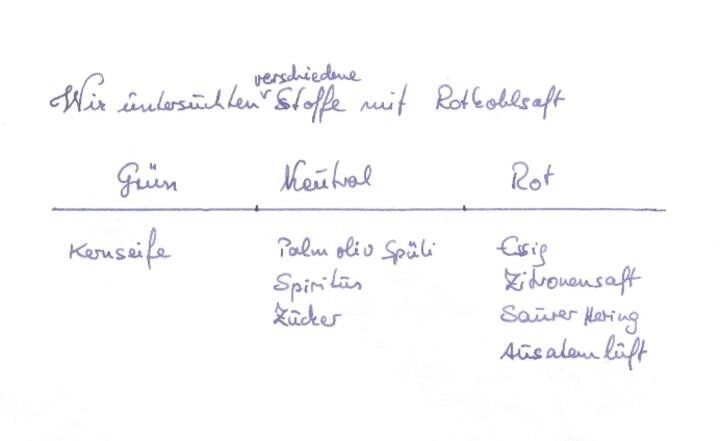 Wir untersuchten verschiedene Stoffe mit Rotkohlsaft
Grün Neutral Rot
Kernseife Palmoliv Spüli Essig
Spiritus Zitronensaft
Zucker Saurer Hering
Ausatemluft